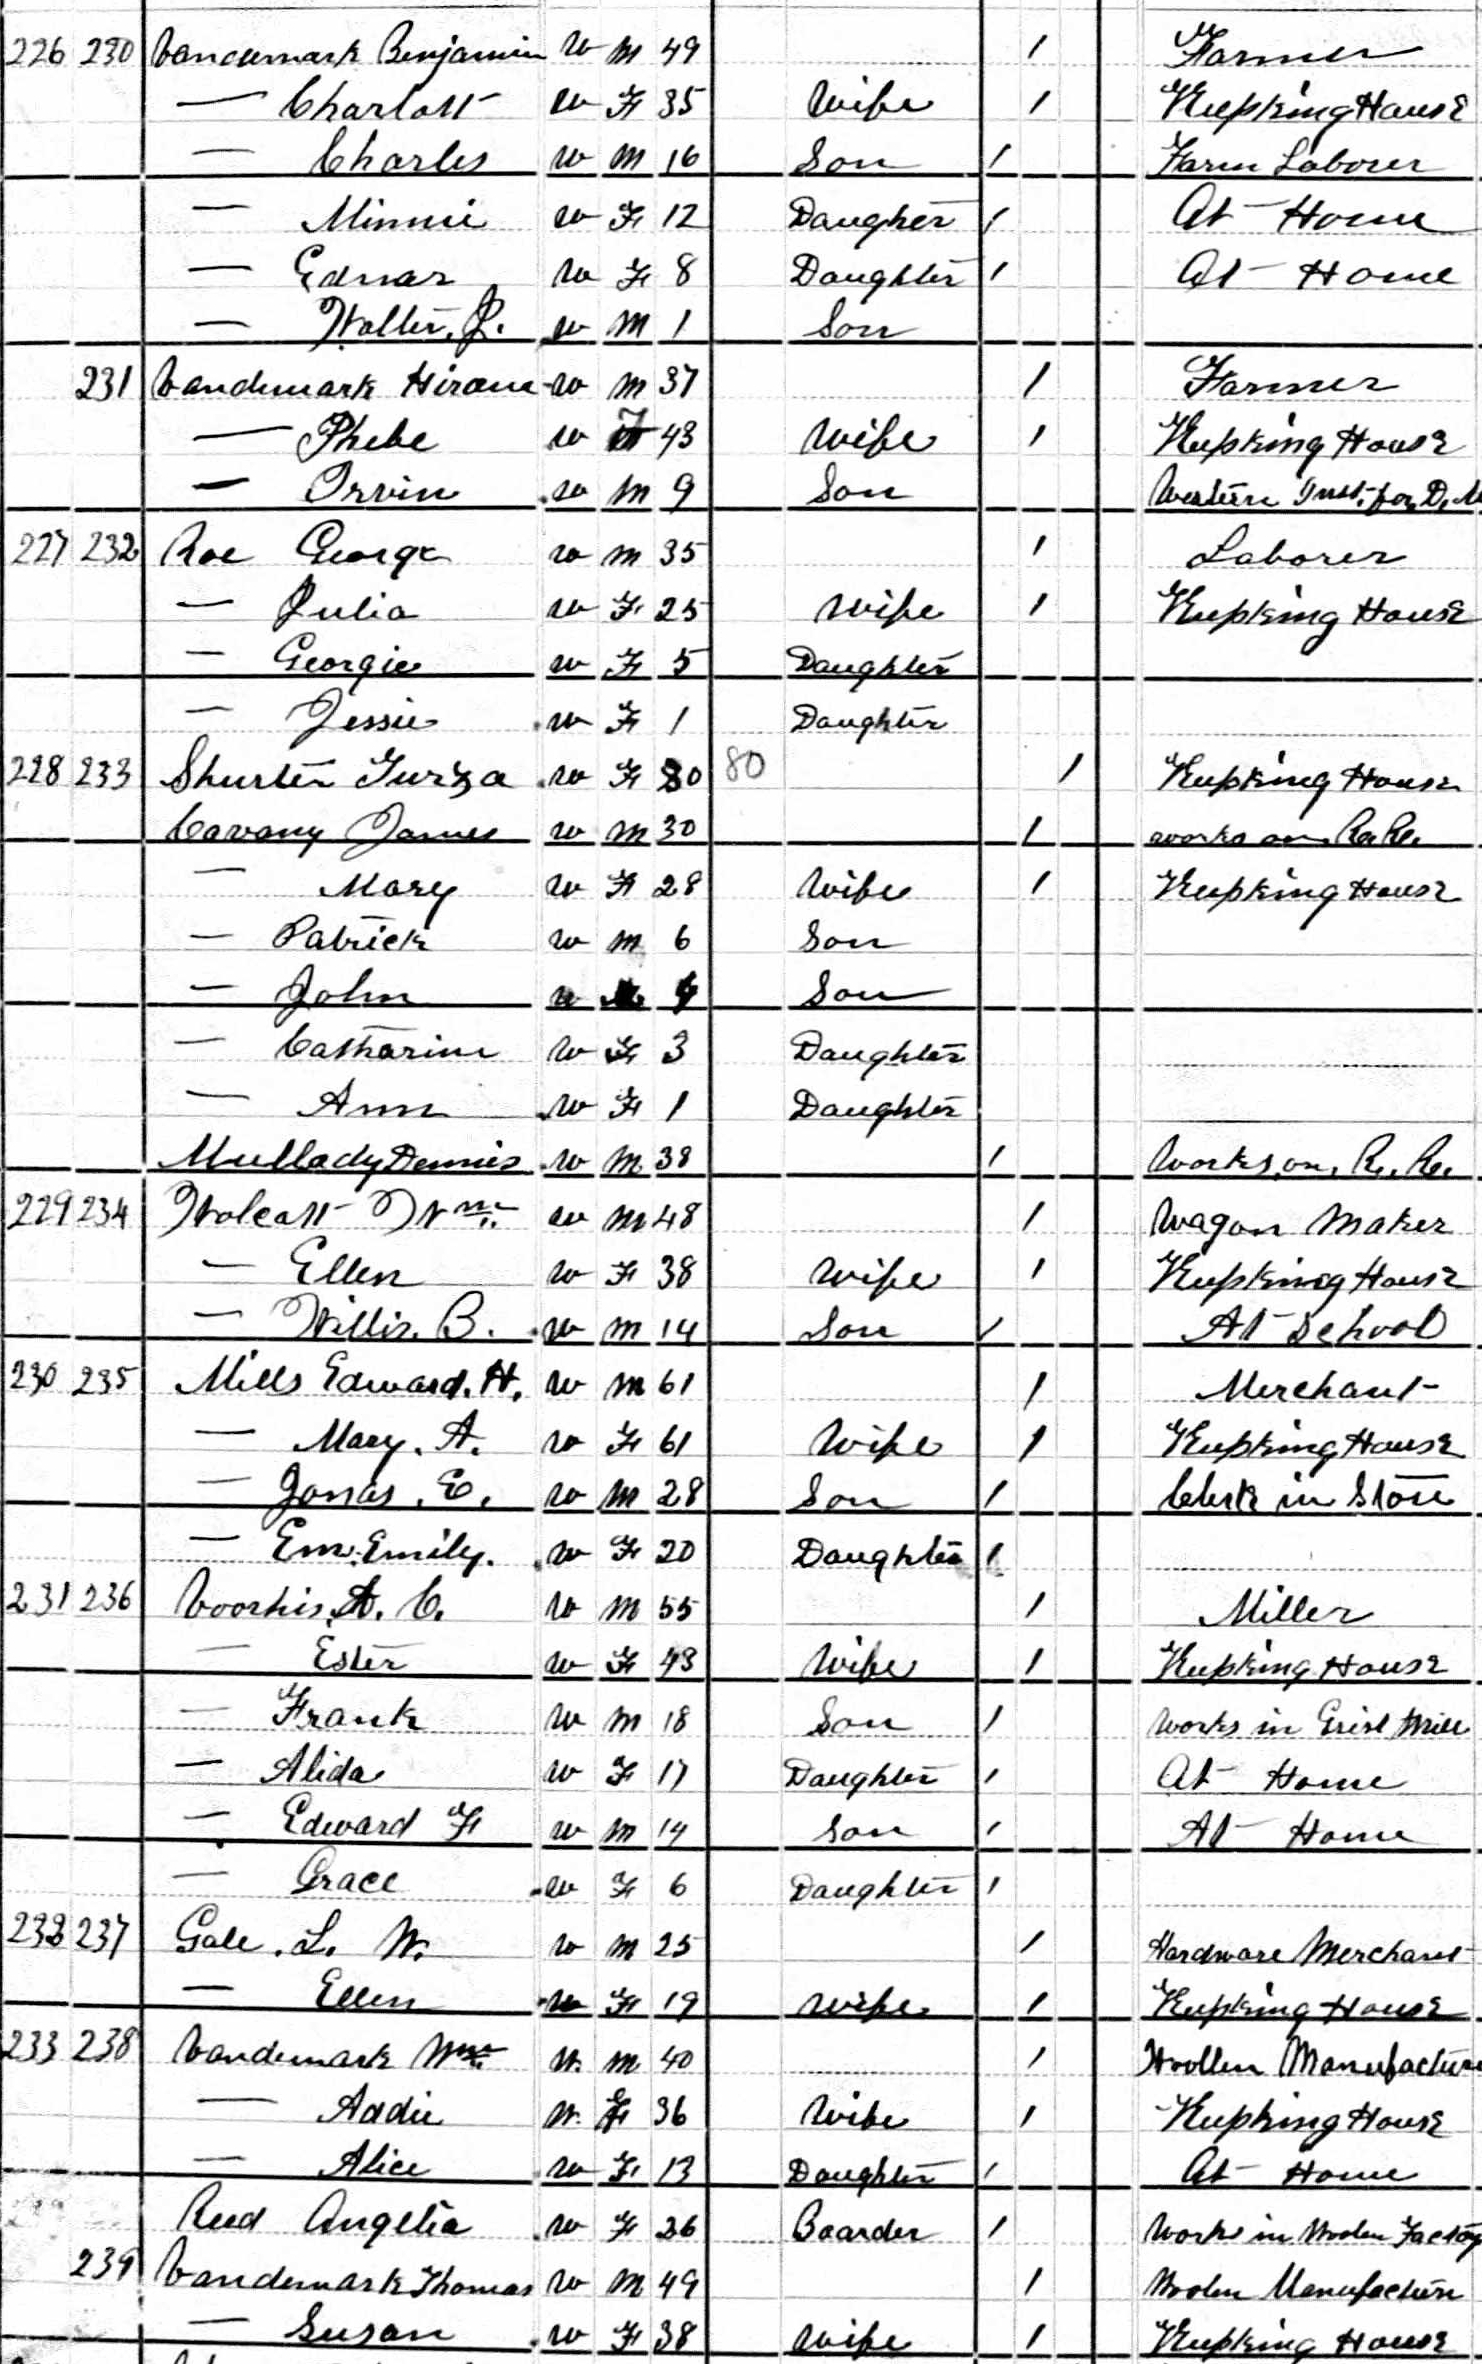 226 230 Vandemark Benjamin W M 49 / Farmer
— Charlott W F 35 Wife / Keepking House
— Charles W M 16 Son / Farm Laborer
— Minnie W F 12 Daugher / At Home
— Ednar W F 8 Daughter / At Home
— Walter. J. W M 1 Son
231 Vandemark Hiram W M 37 / Farmer
— Phebe W F 43 Wife / Keepking House
— Orvin W M 9 Son Western Inst. for D. M
227 232 Roe George W M 35 / Laborer
— Julia W F 25 Wife / Keepking House
— Georgie W F 5 Daughter
— Jessie W F 1 Daughter
228 233 Shurter W F 80 80 / Keepking House
Cavany James W M 30 / works on R. R.
— Mary W F 28 Wife / Keepking House
— Patrick W M 6 Son
— John W M 4 Son
— Catharine W F 3 Daughter
— Ann W F 1 Daughter
Mullady Dennis W M 38 / Works, on, R. R.
229 234 Wolcott Wm. W M 48 / Wagon Maker
— Ellen W F 38 Wife / Keepking House
— Willis. B. W M 14 Son / At School
230 235 Mills Edward. H. W M 61 / Merchant
— Mary. A. W F 61 Wife / Keepking House
— Jonas. E. W M 28 Son / Clerk in Store
— Em. Emily. W F 20 Daughter /
231 236 Voorhis. A. C. W M 55 / Miller
— Ester W F 43 Wife / Keepking House
— Frank W M 18 Son / Works in Grist Mill
— Alida W F 17 Daughter / At Home
— Edward F W M 14 Son / At Home
— Grace W F 6 Daughter /
232 237 Gale. L. W. W M 25 / Hardware Merchant
— Ellen W F 19 Wife / Keepking House
233 238 Vandemark Wm. W. M 40 / Woollen Manufacture
— Addie W. F 36 Wife / Keepking House
— Alice W F 13 Daughter / At Home
Reed Angelia W F 26 Boarder / Works in Woolen Factory
239 Vandemark Thomas W M 49 / Woolen Manufacture
— Susan W F 38 Wife / Keepking House